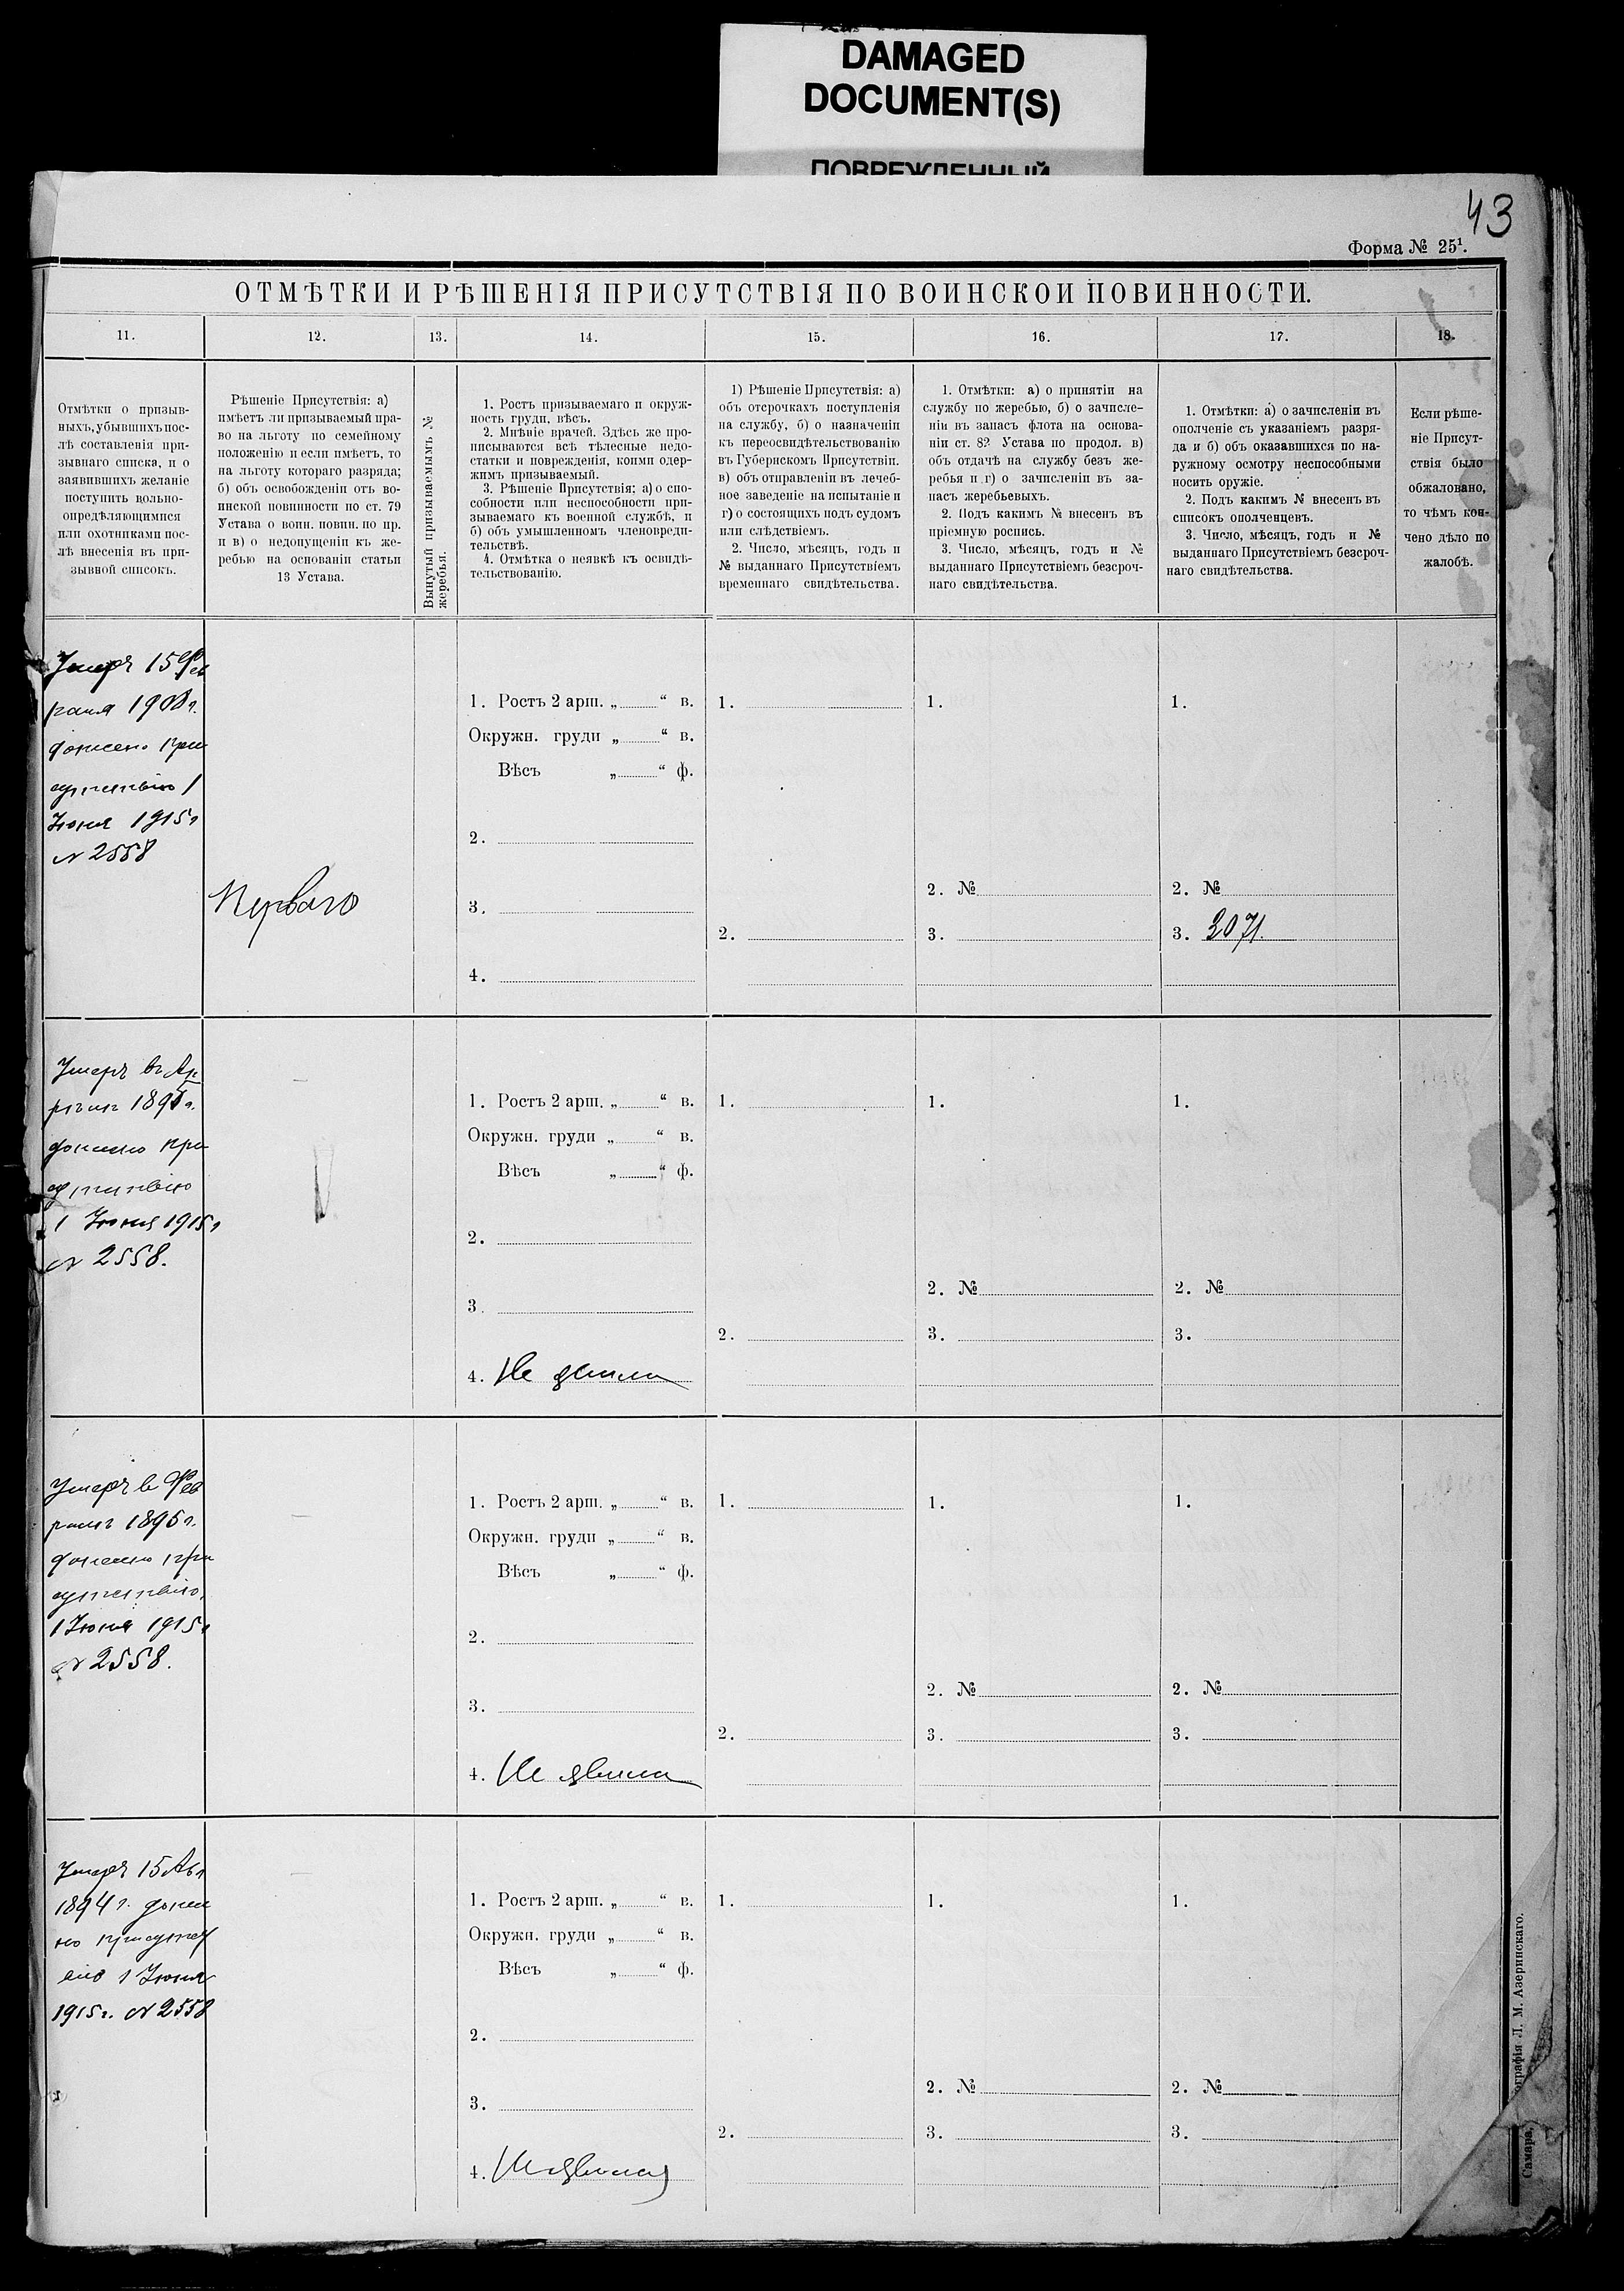 DAMAGED
DOCUMENT(S)
ПОВРЕЖДЕННЫЙ
43
Форма № 25¹.
ОТМѢТКИ И РѢШЕНІЯ ПРИСУТСТВІЯ ПО ВОИНСКОЙ ПОВИННОСТИ.
11.
12.
13.
14.
15.
16.
17.
18.
Отмѣтки о призыв-
ныхъ, убывшихъ пос-
лѣ составленія при-
зывнаго списка, и о
заявившихъ желаніе
поступить вольно-
опредѣляющимися
или охотниками пос-
лѣ внесенія въ при-
зывной списокъ.
Рѣшеніе Присутствія: а)
имѣетъ ли призываемый пра-
во на льготу по семейному
положенію и если имѣетъ, то
на льготу котораго разряда;
б) объ освобожденіи отъ во-
инской повинности по ст. 79
Устава о воин. повин. по пр.
и в) о недопущеніи къ же-
ребью на основаніи статьи
13 Устава.
Вынутый призываемымъ №
жеребья.
1. Ростъ призываемаго и окруж-
ность груди, вѣсъ.
2. Мнѣніе врачей. Здѣсь же про-
писываются всѣ тѣлесные недо-
статки и поврежденія, коими одер-
жимъ призываемый.
3. Рѣшеніе Присутствія: а) о спо-
собности или неспособности при-
зываемаго къ военной службѣ, и
б) объ умышленномъ членовреди-
тельствѣ.
4. Отмѣтка о неявкѣ къ освидѣ-
тельствованію.
1) Рѣшеніе Присутствія: а)
объ отсрочкахъ поступленія
на службу, б) о назначеніи
къ переосвидѣтельствованію
въ Губернскомъ Присутствіи.
в) объ отправленіи въ лечеб-
ное заведеніе на испытаніе и
г) о состоящихъ подъ судомъ
или слѣдствіемъ.
2. Число, мѣсяцъ, годъ и
№ выданнаго Присутствіемъ
временнаго свидѣтельства.
1. Отмѣтки: а) о принятіи на
службу по жеребью, б) о зачисле-
ніи въ запасъ флота на основа-
ніи ст. 82 Устава по продол. в)
объ отдачѣ на службу безъ же-
ребья и г) о зачисленіи въ за-
пасъ жеребьевыхъ.
2. Подъ какимъ № внесенъ въ
пріемную роспись.
3. Число, мѣсяцъ, годъ и №
выданнаго Присутствіемъ безсроч-
наго свидѣтельства.
1. Отмѣтки: а) о зачисленіи въ
ополченіе съ указаніемъ разря-
да и б) объ оказавшихся по на-
ружному осмотру неспособными
носить оружіе.
2. Подъ какимъ № внесенъ въ
списокъ ополченцевъ.
3. Число, мѣсяцъ, годъ и №
выданнаго Присутствіемъ безсроч-
наго свидѣтельства.
Если рѣше-
ніе Присут-
ствія было
обжаловано,
то чѣмъ кон-
чено дѣло по
жалобѣ.
Умеръ 15 Фев
раля 1908 г.
донесено при
сутствію 1
Іюня 1915 г
№ 2558
Перваго
1. Ростъ 2 арш. „ “ в.
Окружн. груди „ “ в.
Вѣсъ „ “ ф.
2.
3.
4.
1.
2.
1.
2. №
3.
1.
2. №
3. 3071.
Умеръ въ Ап
рѣлѣ г.
донесено при
сутствію
1 Іюня 1915 г
№ 2558.
1. Ростъ 2 арш. „ “ в.
Окружн. груди „ “ в.
Вѣсъ „ “ ф.
2.
3.
4. Не явился
1.
2.
1.
2. №
3.
1.
2. №
3.
Умеръ въ Фев
ралѣ 1895 г.
донесено при
сутствію
1 Іюня 1915 г
№ 2558.
1. Ростъ 2 арш. „ “ в.
Окружн. груди „ “ в.
Вѣсъ „ “ ф.
2.
3.
4. Не явился
1.
2.
1.
2. №
3.
1.
2. №
3.
Умеръ 15 Авг
1894 г. донесе
но присутст
вію 1 Іюня
1915 г. № 2558
1. Ростъ 2 арш. „ “ в.
Окружн. груди „ “ в.
Вѣсъ „ “ ф.
2.
3.
4. Не явился
1.
2.
1.
2. №
3.
1.
2. №
3.
Самара, ографія Л. М. Азеринскаго.